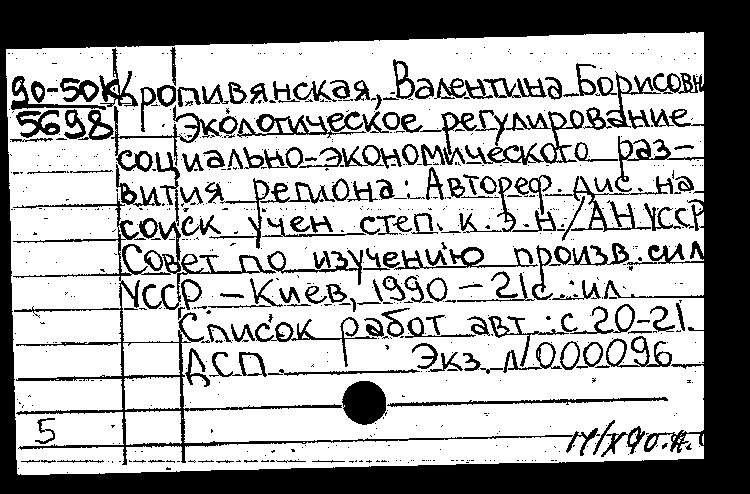 90-50К Кропивянская, Валентина Борисовн
5698 Экологическое регулирование
социально-экономического раз-
вития региона: Автореф. дис. на
соиск. учен. степ. к.э.н./АН УССР
Совет по изучению произв. сил
УССР – Киев, 1990 – 21с.:ил.
Список работ авт.: с 20-21.
ДСП. Экз. N000096
5